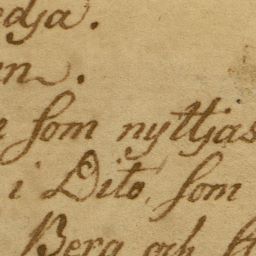 edja.
en.
e som nyttjas
i Dito, som
Berg och st